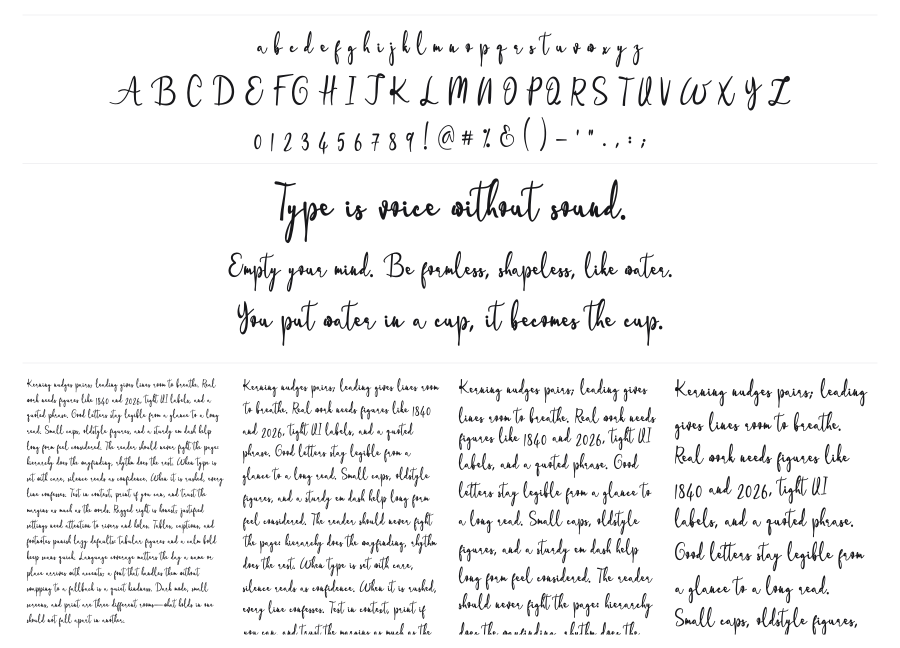 a b c d e f g h i j k l m n o p q r s t u v w x y z
A B C D E F G H I J K L M N O P Q R S T U V W X Y Z
0 1 2 3 4 5 6 7 8 9 ! @ # % & ( ) – ' " . , : ;
Type is voice without sound.
Empty your mind. Be formless, shapeless, like water.
You put water in a cup, it becomes the cup.
Kerning nudges pairs; leading gives lines room to breathe. Real
work needs figures like 1840 and 2026, tight UI labels, and a
quoted phrase. Good letters stay legible from a glance to a long
read. Small caps, oldstyle figures, and a sturdy em dash help
long form feel considered. The reader should never fight the page;
hierarchy does the wayfinding, rhythm does the rest. When type is
set with care, silence reads as confidence. When it is rushed, every
line confesses. Test in context, print if you can, and trust the
margins as much as the words. Ragged right is honest; justified
settings need attention to rivers and holes. Tables, captions, and
footnotes punish lazy defaults; tabular figures and a calm bold
keep peace quick. Language coverage matters the day a name or
place arrives with accents; a font that handles them without
snapping to a fallback is a quiet kindness. Dark mode, small
screens, and print are three different rooms—what holds in one
should not fall apart in another.
Kerning nudges pairs; leading gives lines room
to breathe. Real work needs figures like 1840
and 2026, tight UI labels, and a quoted
phrase. Good letters stay legible from a
glance to a long read. Small caps, oldstyle
figures, and a sturdy em dash help long form
feel considered. The reader should never fight
the page; hierarchy does the wayfinding, rhythm
does the rest. When type is set with care,
silence reads as confidence. When it is rushed,
every line confesses. Test in context, print if
you can, and trust the margins as much as the
Kerning nudges pairs; leading gives
lines room to breathe. Real work needs
figures like 1840 and 2026, tight UI
labels, and a quoted phrase. Good
letters stay legible from a glance to
a long read. Small caps, oldstyle
figures, and a sturdy em dash help
long form feel considered. The reader
should never fight the page; hierarchy
does the wayfinding, rhythm does the
Kerning nudges pairs; leading
gives lines room to breathe.
Real work needs figures like
1840 and 2026, tight UI
labels, and a quoted phrase.
Good letters stay legible from
a glance to a long read.
Small caps, oldstyle figures,